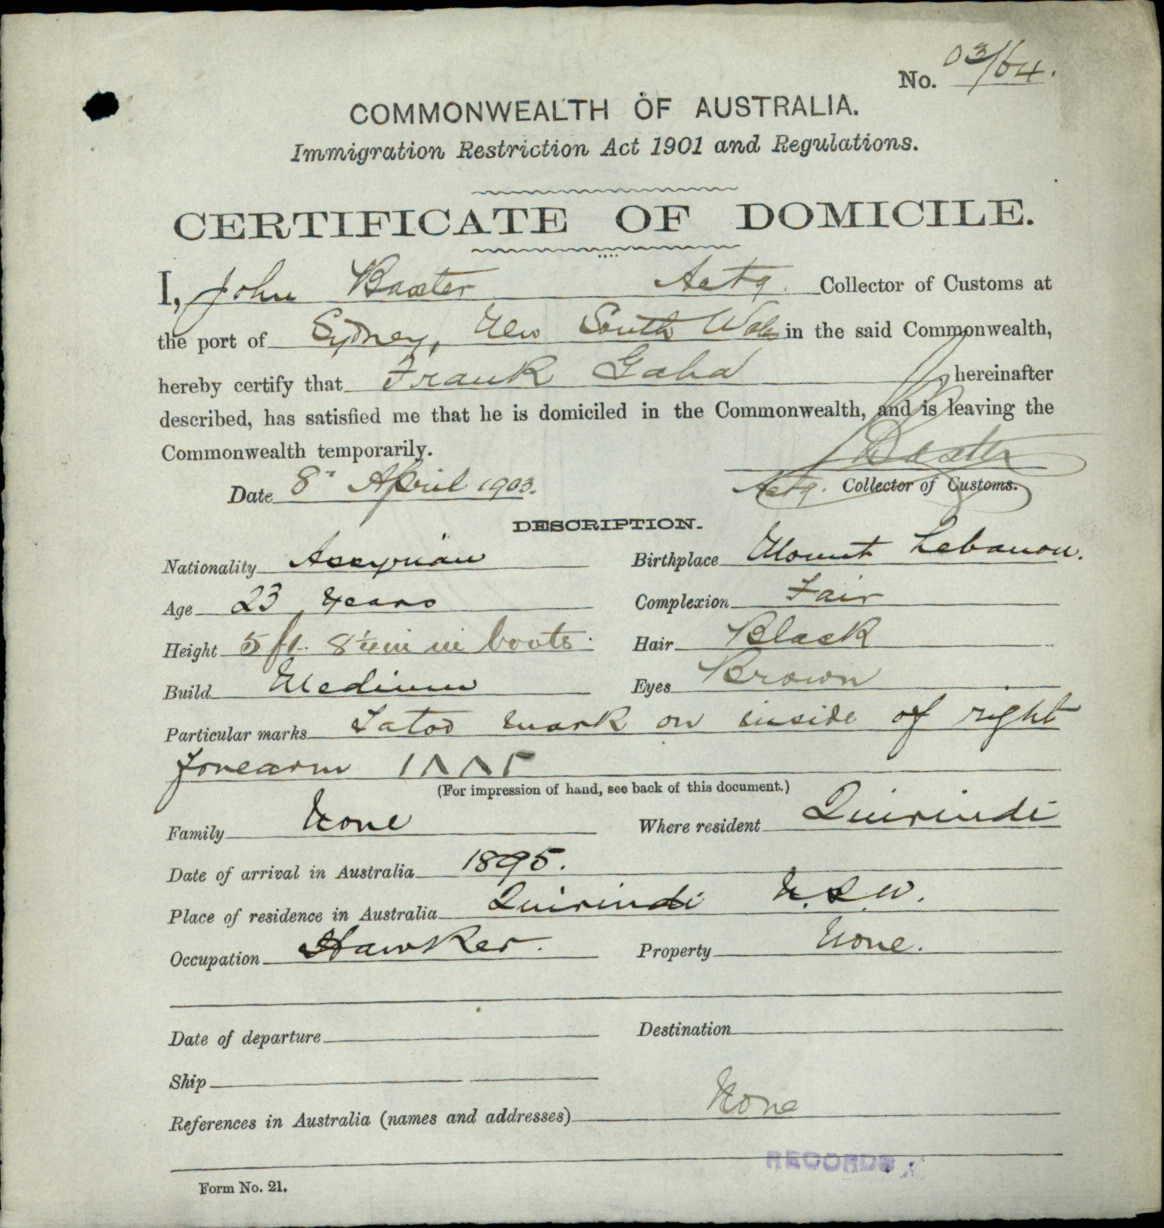 No. 03/64.
COMMONWEALTH OF AUSTRALIA.
Immigration Restriction Act 1901 and Regulations.
CERTIFICATE OF DOMICILE.
I, John Baxter Actg. Collector of Customs at
the port of Sydney, New South Wales in the said Commonwealth,
hereby certify that Frank Gaha, hereinafter
described, has satisfied me that he is domiciled in the Commonwealth, and is leaving the
Commonwealth temporarily.
Baxter
Date 8th April 1903. Actg. Collector of Customs.
DESCRIPTION.
Nationality Assyrian Birthplace Mount Lebanon.
Age 23 Years Complexion Fair
Height 5 ft. 8½ in in boots. Hair Black
Build Medium Eyes Brown
Particular marks Tatoo mark on inside of right
forearm 1ΛΛ5
(For impression of hand, see back of this document.)
Family None Where resident Quirindi
Date of arrival in Australia 1895.
Place of residence in Australia Quirindi N.S.W.
Occupation Hawker. Property None.
Date of departure Destination
Ship
References in Australia (names and addresses) None
RECORDS
Form No. 21.